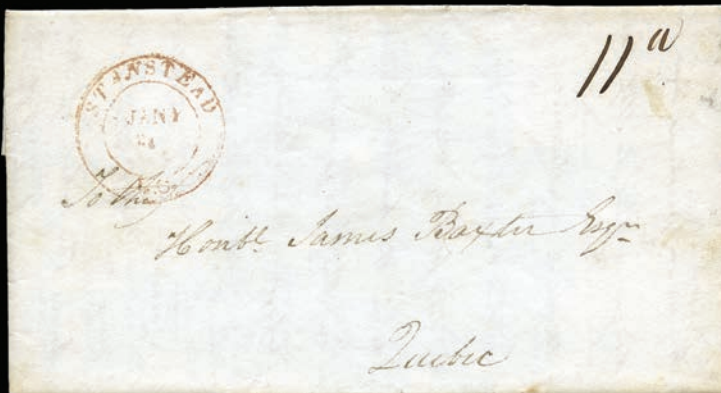 11d
STANSTEAD
JANY
To the
Honbl. James Baxter Esqr
Quebec